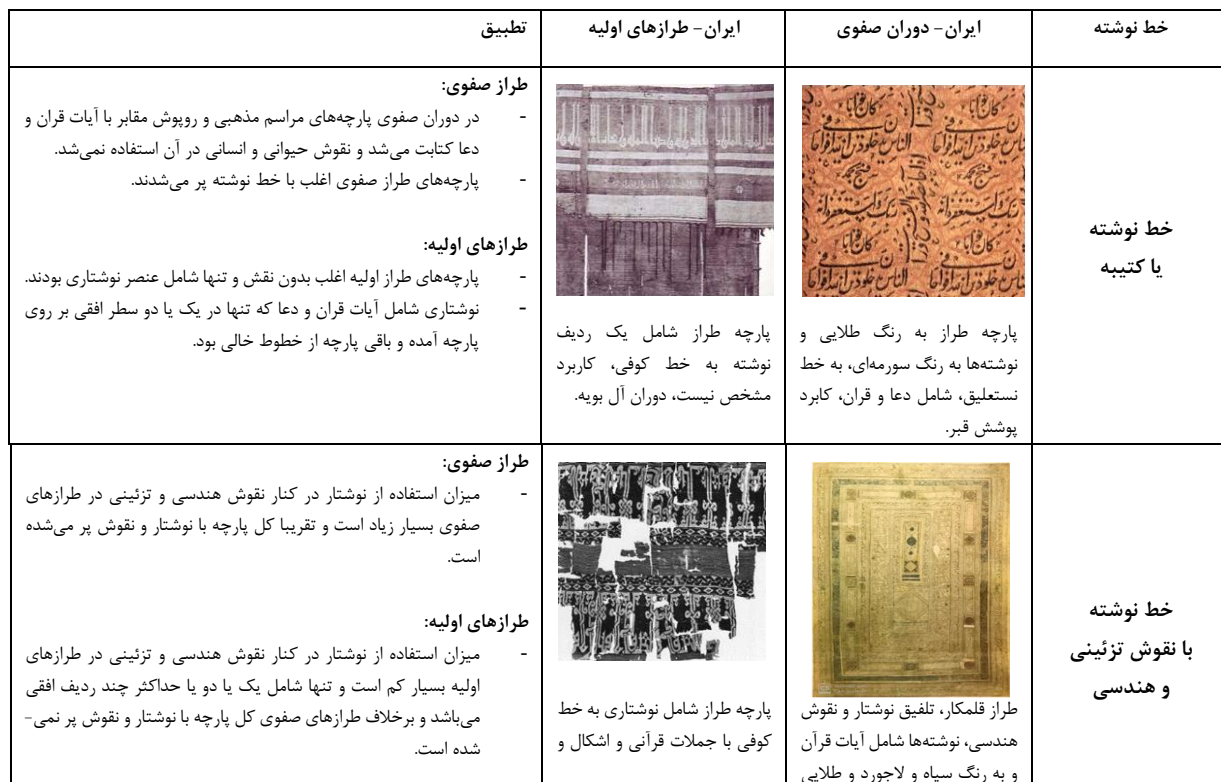 خط نوشته
ایران- دوران صفوی
ایران- طرازهای اولیه
تطبیق
خط نوشته
یا کتیبه
پارچه طراز به رنگ طلایی و
نوشته‌ها به رنگ سورمه‌ای، به خط
نستعلیق، شامل دعا و قران، کابرد
پوشش قبر.
پارچه طراز شامل یک ردیف
نوشته به خط کوفی، کاربرد
مشخص نیست، دوران آل بویه.
طراز صفوی:
- در دوران صفوی پارچه‌های مراسم مذهبی و روپوش مقابر با آیات قران و
دعا کتابت می‌شد و نقوش حیوانی و انسانی در آن استفاده نمی‌شد.
- پارچه‌های طراز صفوی اغلب با خط نوشته پر می‌شدند.
طرازهای اولیه:
- پارچه‌های طراز اولیه اغلب بدون نقش و تنها شامل عنصر نوشتاری بودند.
- نوشتاری شامل آیات قران و دعا که تنها در یک یا دو سطر افقی بر روی
پارچه آمده و باقی پارچه از خطوط خالی بود.
خط نوشته
با نقوش تزئینی
و هندسی
طراز قلمکار، تلفیق نوشتار و نقوش
هندسی، نوشته‌ها شامل آیات قرآن
و به رنگ سیاه و لاجورد و طلایی
پارچه طراز شامل نوشتاری به خط
کوفی با جملات قرآنی و اشکال و
طراز صفوی:
- میزان استفاده از نوشتار در کنار نقوش هندسی و تزئینی در طرازهای
صفوی بسیار زیاد است و تقریبا کل پارچه با نوشتار و نقوش پر می‌شده
است.
طرازهای اولیه:
- میزان استفاده از نوشتار در کنار نقوش هندسی و تزئینی در طرازهای
اولیه بسیار کم است و تنها شامل یک یا دو یا حداکثر چند ردیف افقی
می‌باشد و برخلاف طرازهای صفوی کل پارچه با نوشتار و نقوش پر نمی-
شده است.